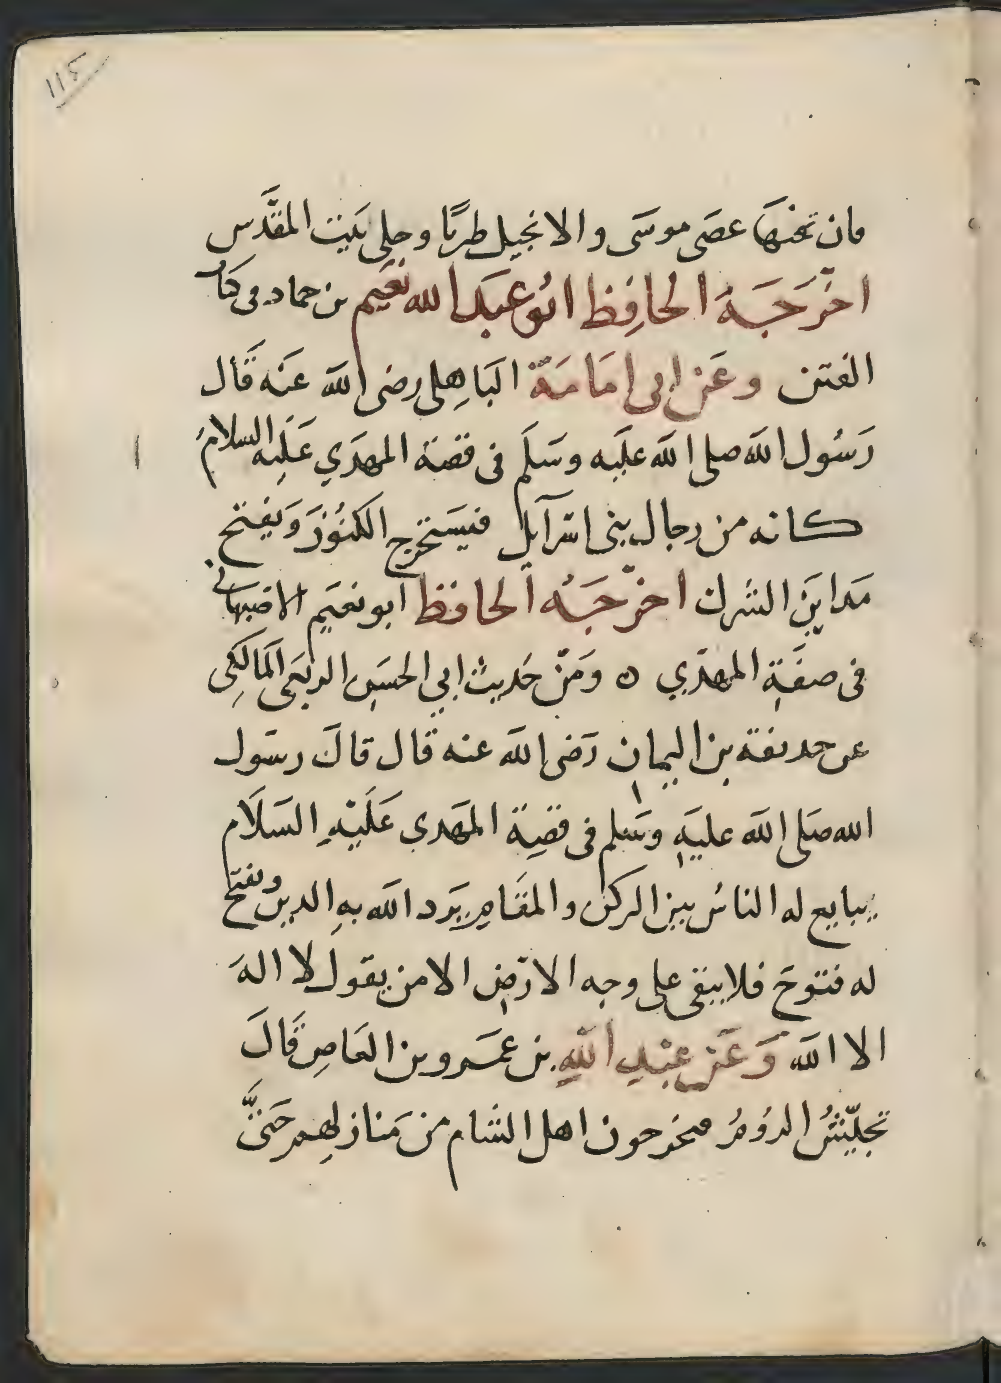 ١١٤
فان تحتها عصى موسى والانجيل طريًا وحلى بيت المقدس
اخرجه الحافظ ابو عبد الله نعيم بن حماد فى كتاب
الفتن وعن ابى امامة الباهلى رضى الله عنه قال
رسول الله صلى الله عليه وسلم فى قصة المهدي عليه السلام
كانه من رجال بنى اسرآيل فيستخرج الكنوز ويفتح
مداين الشرك اخرجه الحافظ ابو نعيم الاصبهانى
فى صفة المهدي ٥ ومن حديث ابي الحسن الربعى المالكى
عن حديفة بن اليمان رضى الله عنه قال قال رسول
الله صلى الله عليه وسلم فى قصة المهدى عليه السلام
يبايع له الناس بين الركن والمقام يرد الله به الدين ويفتح
له فتوح فلا يبقى على وجه الارض الا من يقول لا اله
الا الله وعن عبد الله بن عمرو بن العاص قال
تجيّش الروم فيخرجون اهل الشام من منازلهم حتى